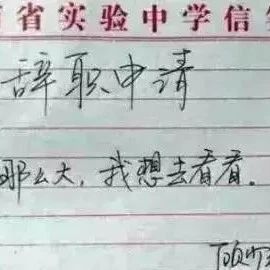 省实验中学信
辞职申请
那么大，我想去看看。
顾